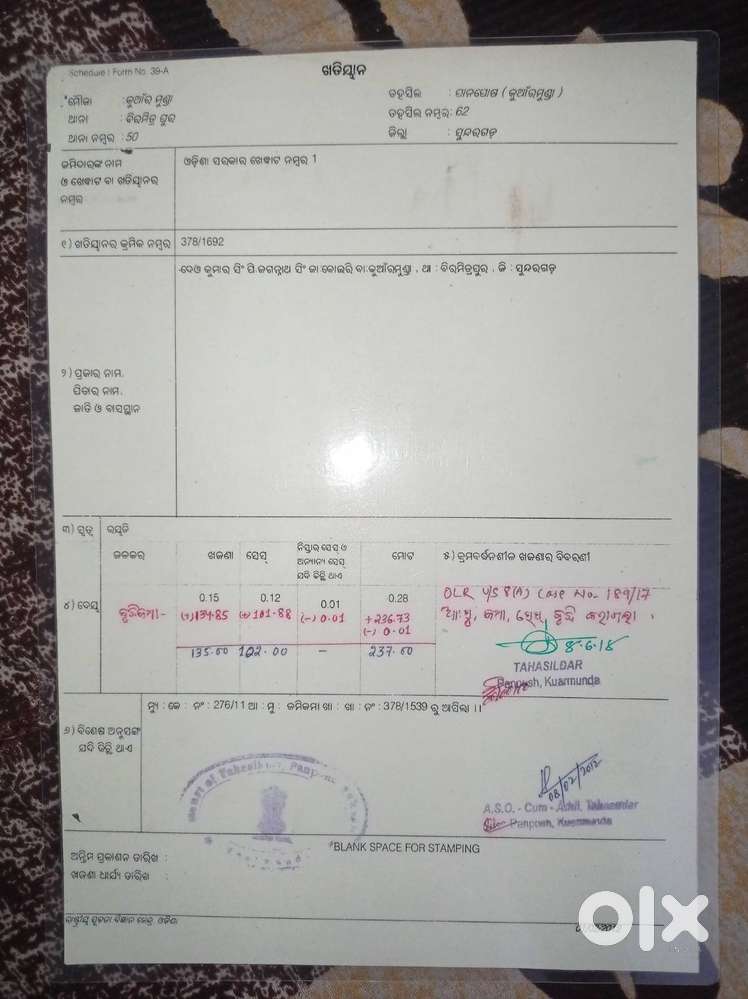 Schedule I Form No. 39-A
ଖତିୟାନ
ମୌଜା : କୁଆଁରମୁଣ୍ଡା
ତହସିଲ : ପାନପୋଷ ( କୁଆଁରମୁଣ୍ଡା )
ଥାନା : ବିରମିତ୍ର ପୁର
ତହସିଲ ନମ୍ବର: 62
ଥାନା ନମ୍ବର : 50
ଜିଲ୍ଲା : ସୁନ୍ଦରଗଡ଼
ଜମିଦାରଙ୍କ ନାମ
ଓ ଖେୱାଟ ବା ଖତିୟାନର
ନମ୍ବର
ଓଡ଼ିଶା ସରକାର ଖେୱାଟ ନମ୍ବର 1
୧) ଖତିୟାନର କ୍ରମିକ ନମ୍ବର 378/1692
୨) ପ୍ରଜାର ନାମ,
ପିତାର ନାମ,
ଜାତି ଓ ବାସସ୍ଥାନ
ଦେଓ କୁମାର ସିଂ ପି.ଜଗନ୍ନାଥ ସିଂ ଜା କୋଇରି ବା.କୁଆଁରମୁଣ୍ଡା , ଥା : ବିରମିତ୍ରପୁର , ଜି : ସୁନ୍ଦରଗଡ଼
୩) ସ୍ଵତ୍ଵ ରୟତି
ଜଳକର ଖଜଣା ସେସ୍ ନିସ୍ତାର ସେସ୍ ଓ ଅନ୍ୟାନ୍ୟ ସେସ୍ ଯଦି କିଛି ଥାଏ ମୋଟ ୫) କ୍ରମବର୍ଦ୍ଧନଶୀଳ ଖଜଣାର ବିବରଣୀ
୪) ଦେୟ 0.15 0.12 0.01 0.28
(+)134.85 (+)101.88 (-) 0.01 +236.73
(-) 0.01
135.00 102.00 - 237.00
OLR U/S 8(A) Case No. 189/17
8.6.18
TAHASILDAR
Panposh, Kuarmunda
ମ୍ୟୁ : କେ : ନଂ : 276/11 ଆ : ମୁ : ଜମିଜମା ଖା : ଖା : ନଂ : 378/1539 ରୁ ଆସିଲା ।।
୬) ବିଶେଷ ଅନୁସଙ୍ଗ
ଯଦି କିଛି ଥାଏ
Court of Tahesildar, Panposh
08/02/2012
A.S.O. - Cum - Addl. Tahasildar
Panposh, Kuarmunda
*BLANK SPACE FOR STAMPING
ଅନ୍ତିମ ପ୍ରକାଶନ ତାରିଖ :
ଖଜଣା ଧାର୍ଯ୍ୟ ତାରିଖ :
ରାଷ୍ଟ୍ରୀୟ ସୂଚନା ବିଜ୍ଞାନ କେନ୍ଦ୍ର, ଓଡ଼ିଶା
olx